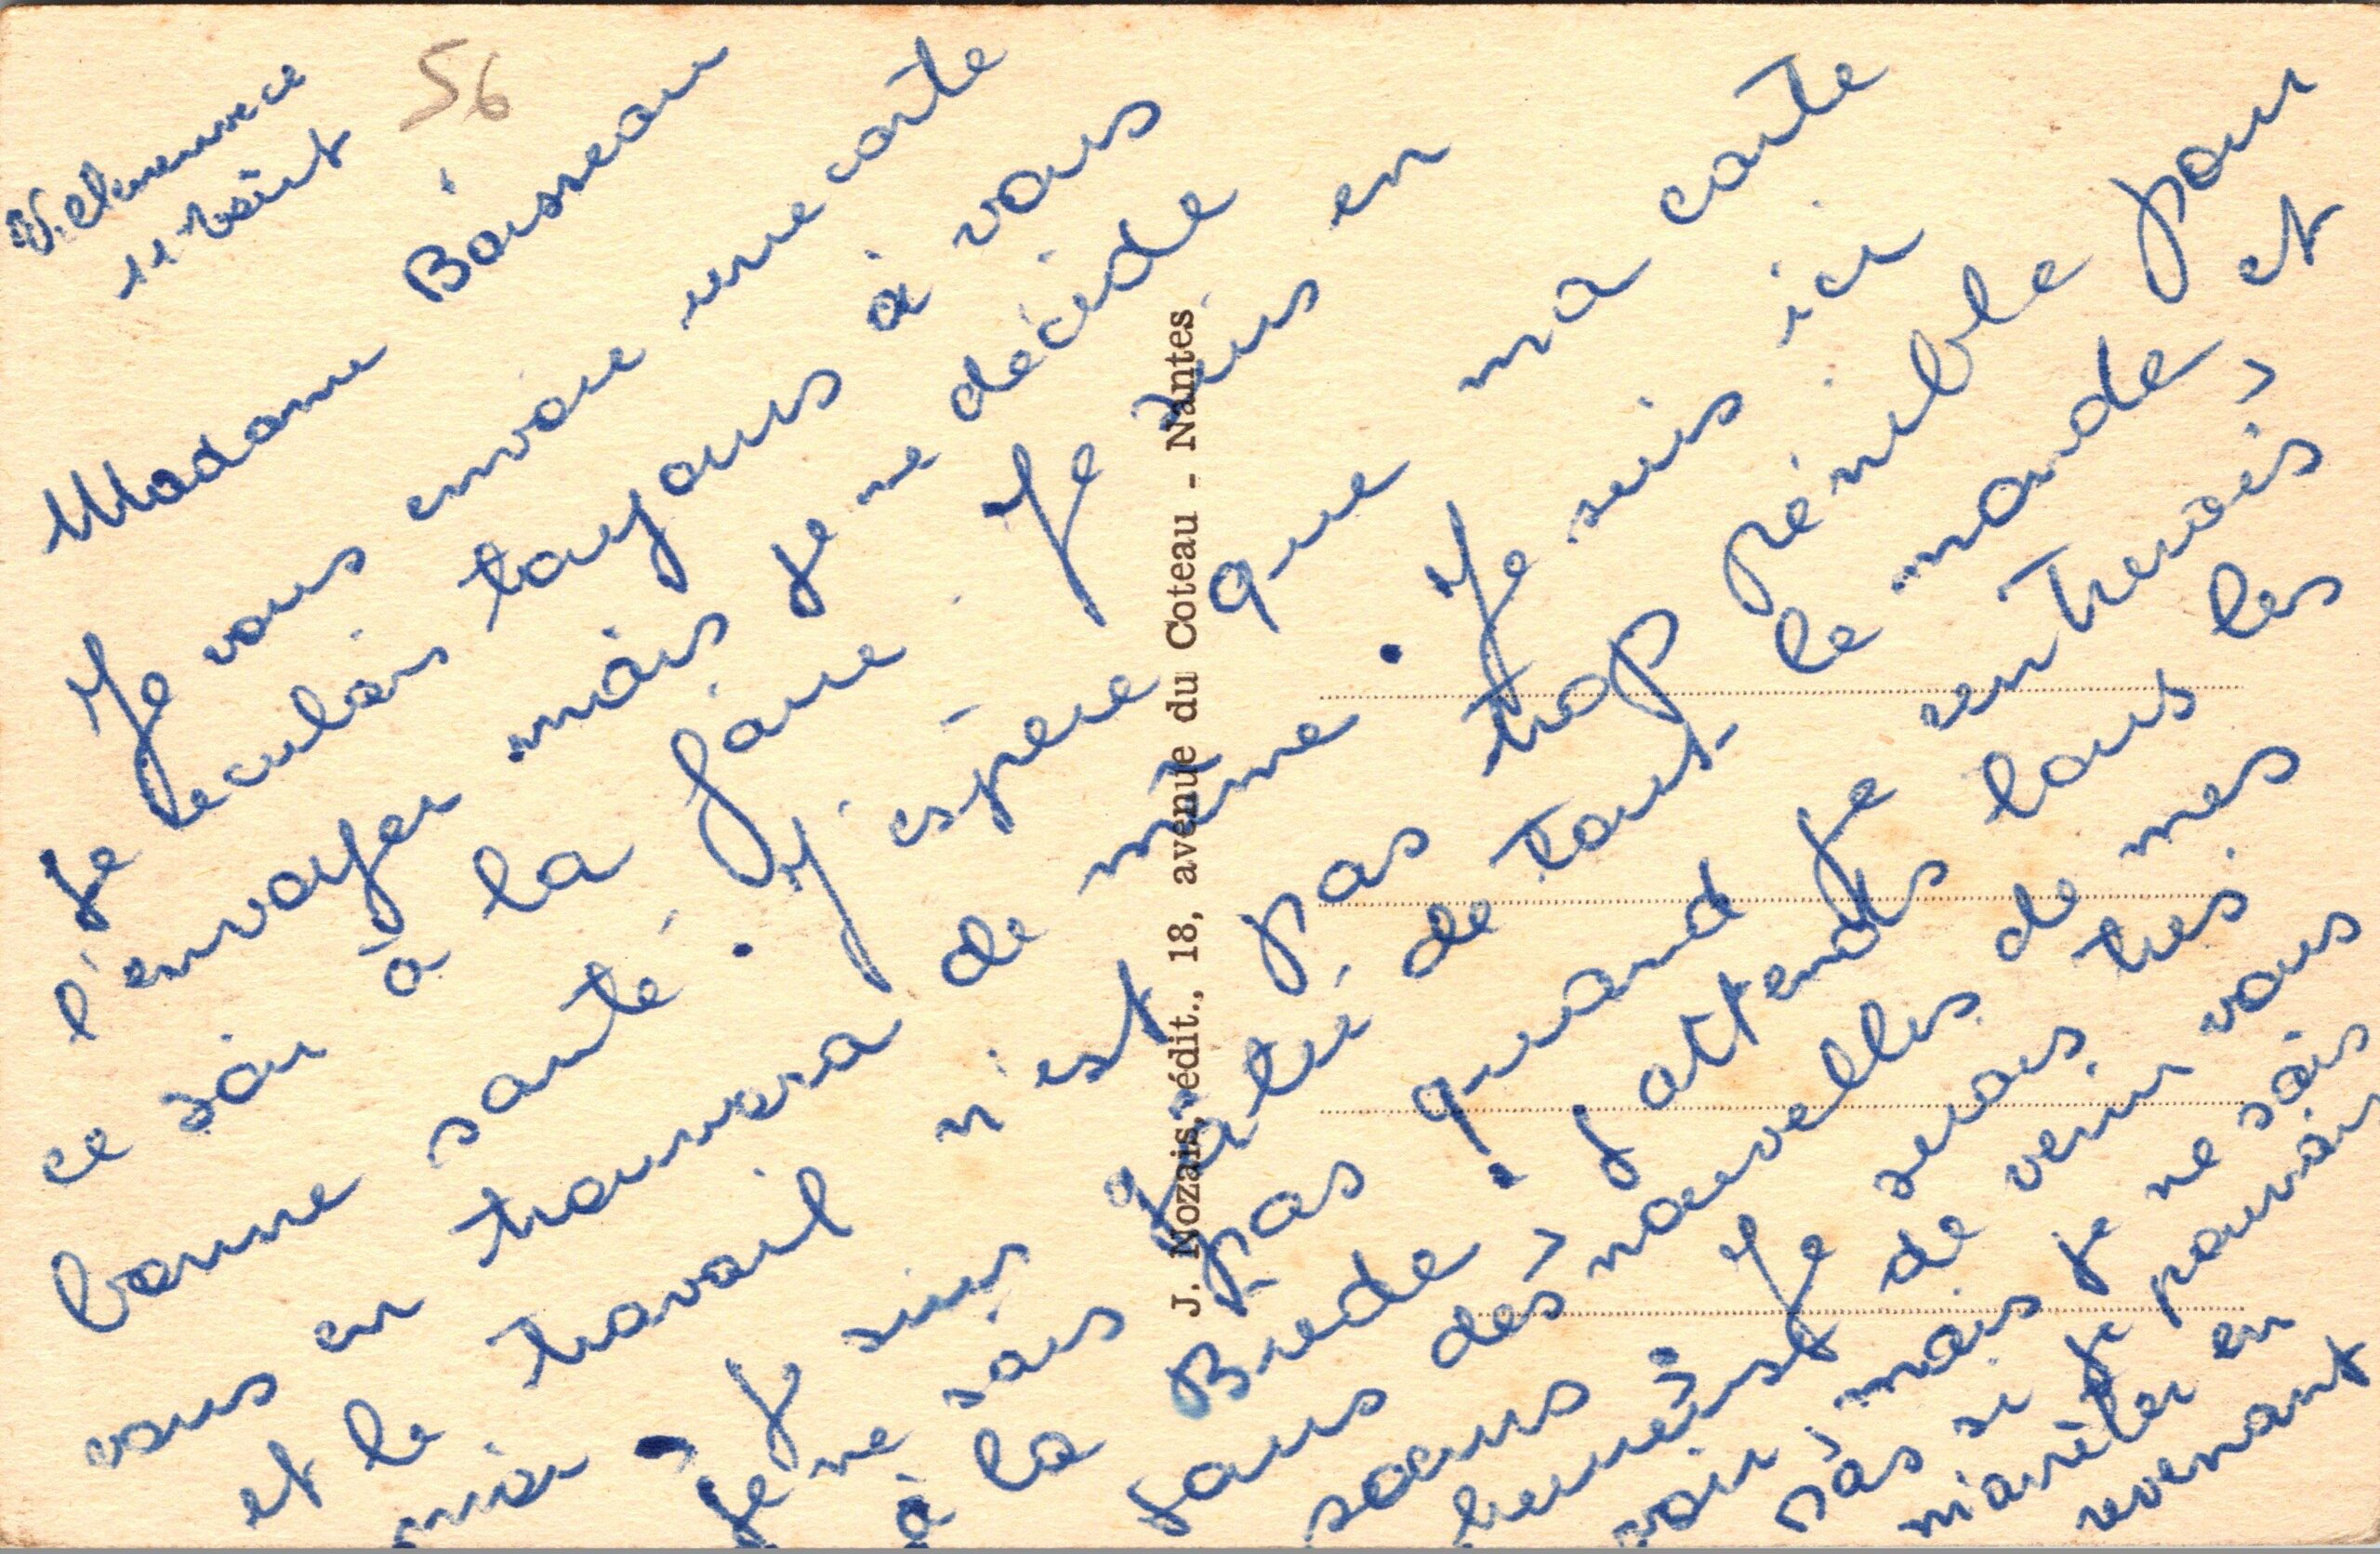 11 août
56
Madame Boisseau
Je vous envoie une carte
Je reculais toujours à vous
l'envoyer mais je me décide
ce soir à la faire. Je suis en
bonne santé. J'espère que ma carte
vous en trouvera de même. Je suis ici
et le travail n'est pas trop pénible pour
moi, je suis gâtée de tout le monde et
je ne sais pas quand je rentrerais,
à la Brede. J'attends tous les
jours des nouvelles de mes
soeurs, Je serais très
de venir vous
voir, mais je ne sais
pas si je pourrais
m'arrêter en
revenant
J. Nozais, édit., 18, avenue du Coteau - Nantes